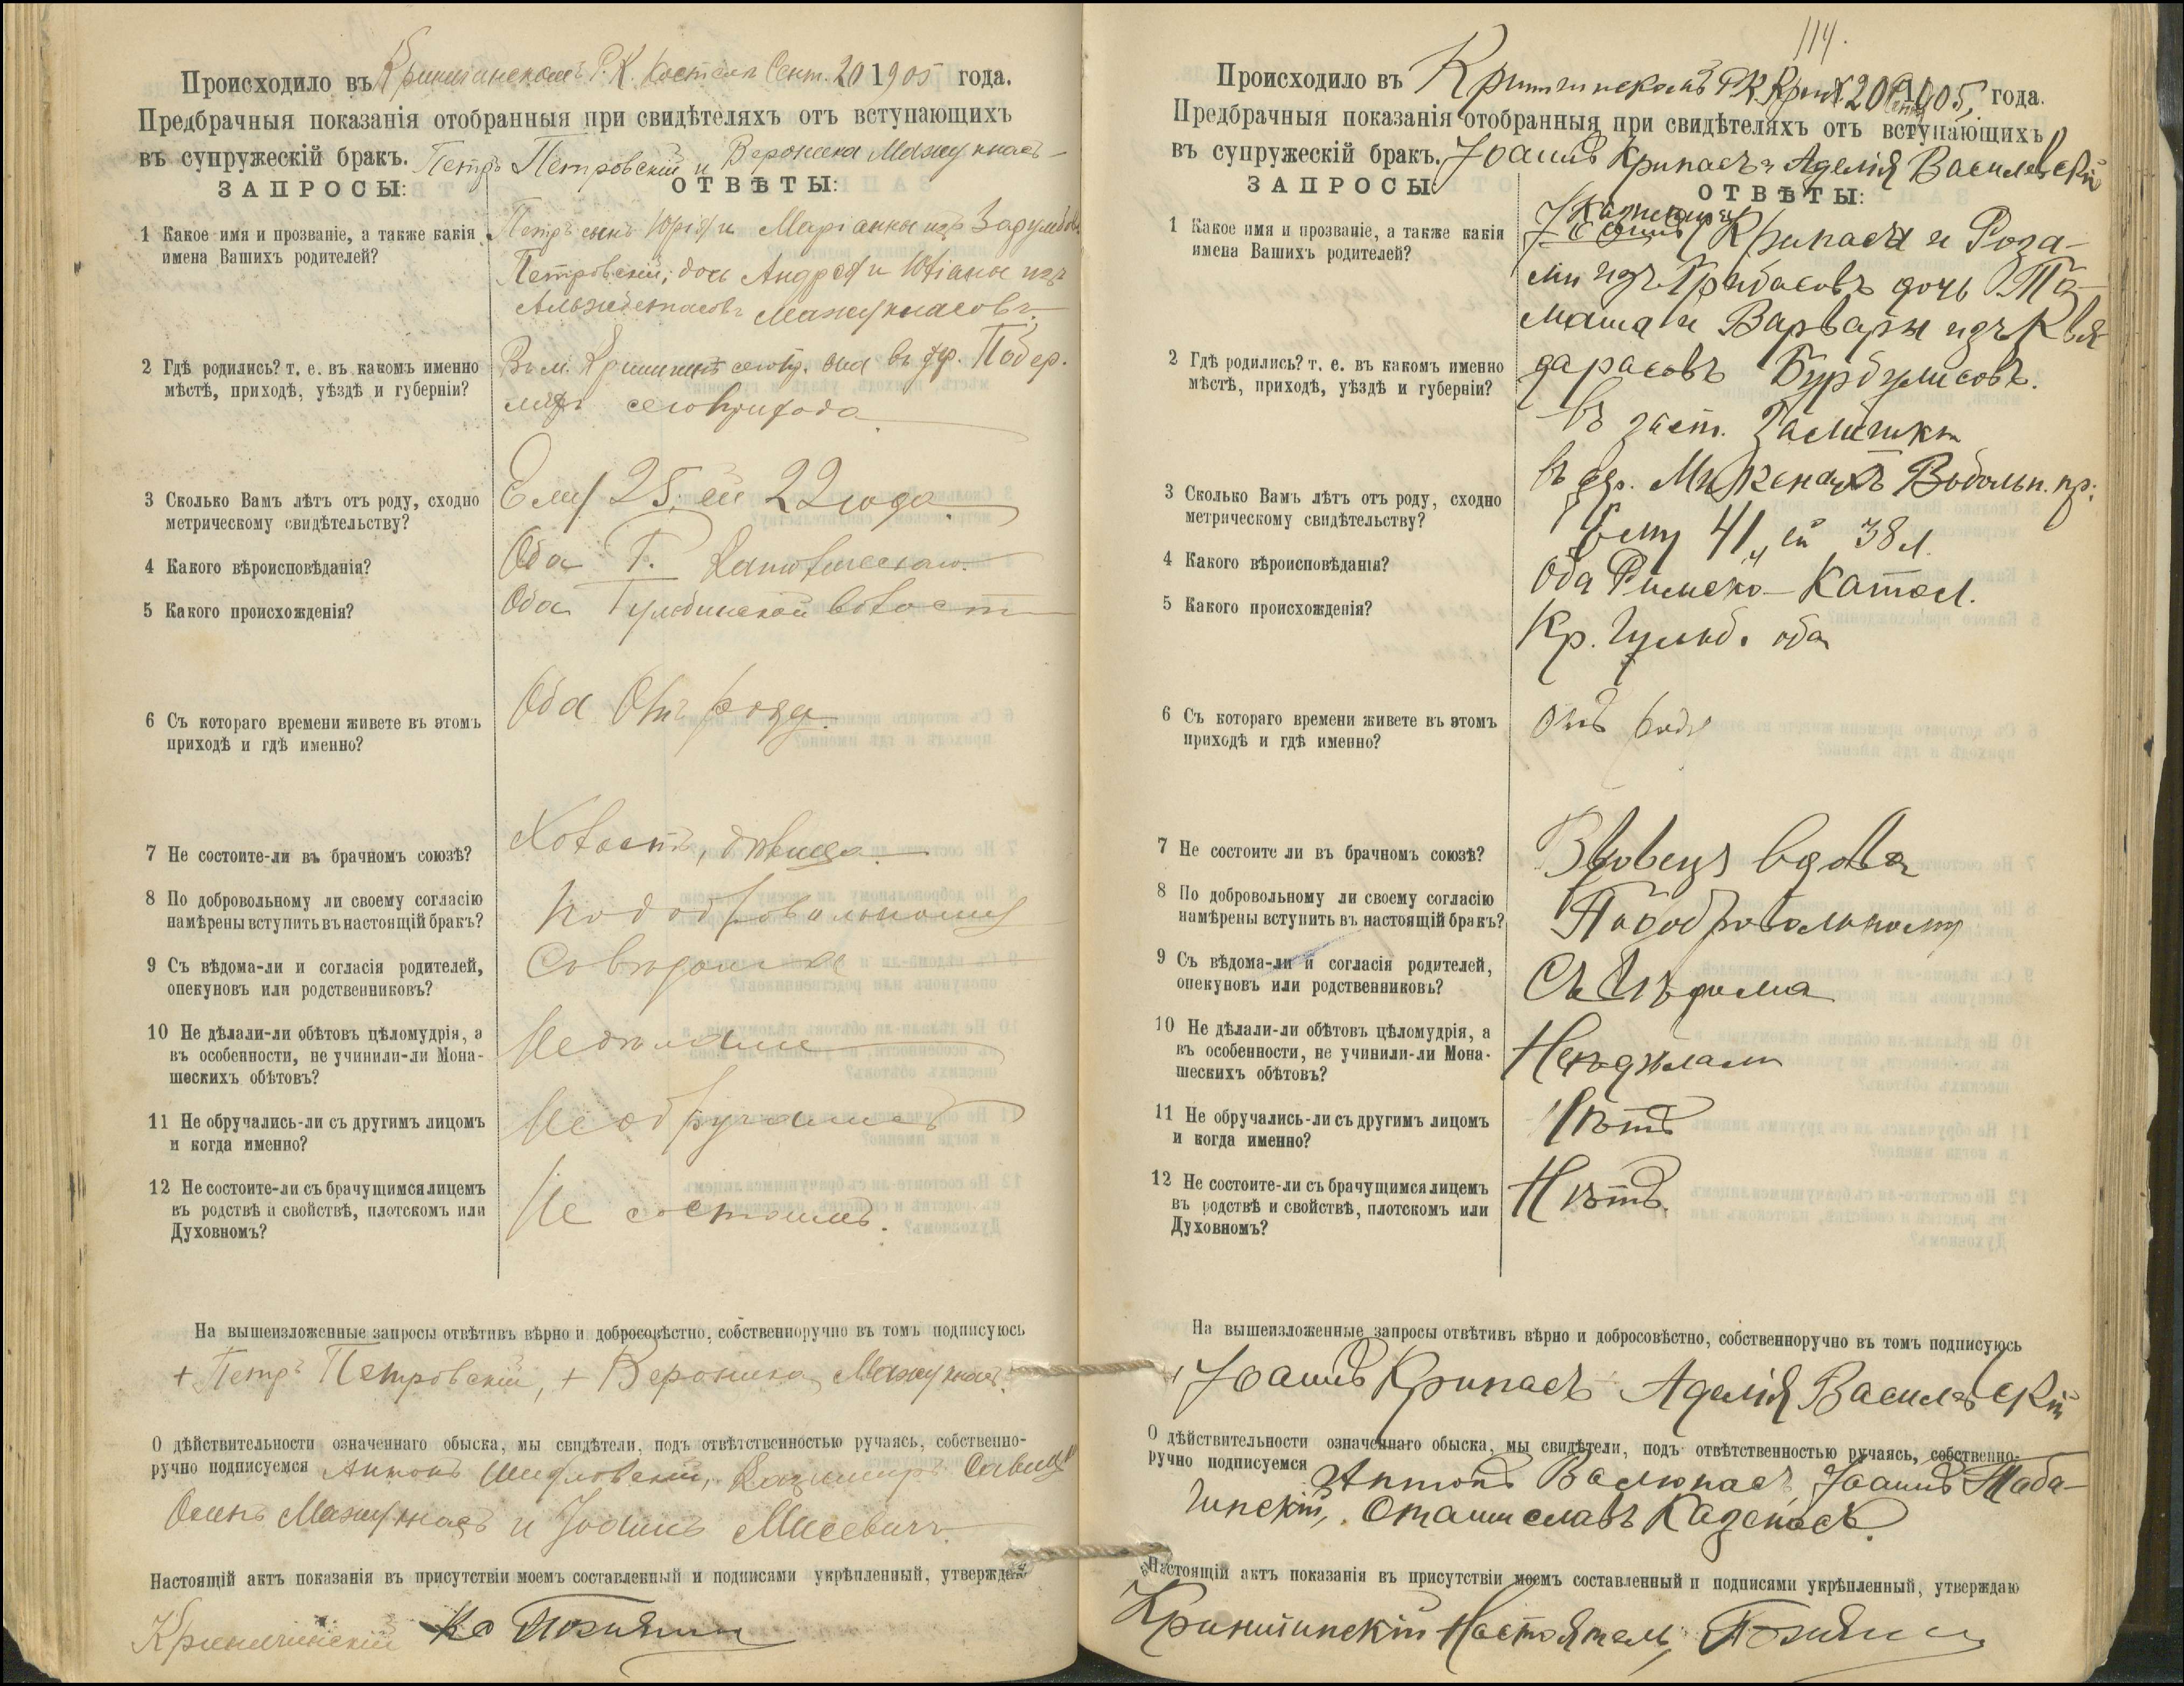 Происходило въ Р. К. Сент. 20 1905 года.
Предбрачныя показанія отобранныя при свидѣтеляхъ отъ вступающихъ
въ супружескій бракъ. Петръ Петровскій и Вероника
ЗАПРОСЫ: ОТВѢТЫ:
1 Какое имя и прозваніе, а также какія
имена Вашихъ родителей?
Петръ сынъ Юрія и Маріанны изъ
Петровскій; дочь Андрея и изъ
2 Гдѣ родились? т. е. въ какомъ именно
мѣстѣ, приходѣ, уѣздѣ и губерніи?
въ др.
3 Сколько Вамъ лѣтъ отъ роду, сходно
метрическому свидѣтельству?
Ему 25, ей 22 года
4 Какого вѣроисповѣданія?
Оба Р.
5 Какого происхожденія?
Оба
6 Съ котораго времени живете въ этомъ
приходѣ и гдѣ именно?
Оба Отъ роду.
7 Не состоите-ли въ брачномъ союзѣ?
Холостъ, дѣвица
8 По добровольному ли своему согласію
намѣрены вступить въ настоящій бракъ?
По добровольному
9 Съ вѣдома-ли и согласія родителей,
опекуновъ или родственниковъ?
10 Не дѣлали-ли обѣтовъ цѣломудрія, а
въ особенности, не учинили-ли Мона-
шескихъ обѣтовъ?
Не дѣлали
11 Не обручались-ли съ другимъ лицомъ
и когда именно?
Не обручались
12 Не состоите-ли съ брачущимся лицемъ
въ родствѣ и свойствѣ, плотскомъ или
Духовномъ?
Не состоимъ.
На вышеизложенные запросы отвѣтивъ вѣрно и добросовѣстно, собственноручно въ томъ подписуюсь
+ Петръ Петровскій, + Вероника
О дѣйствительности означеннаго обыска, мы свидѣтели, подъ отвѣтственностью ручаясь, собственно-
ручно подписуемся Антонъ
и Іоаннъ
Настоящій актъ показанія въ присутствіи моемъ составленный и подписями укрѣпленный, утверждаю
114.
Происходило въ 20 1905, года.
Предбрачныя показанія отобранныя при свидѣтеляхъ отъ вступающихъ
въ супружескій бракъ. Іоаннъ Крипасъ и Аделія
ЗАПРОСЫ: ОТВѢТЫ:
1 Какое имя и прозваніе, а также какія
имена Вашихъ родителей?
Крипасъ и Роза-
изъ дочь
и Варвары изъ
2 Гдѣ родились? т. е. въ какомъ именно
мѣстѣ, приходѣ, уѣздѣ и губерніи?
въ заст.
въ др.
3 Сколько Вамъ лѣтъ отъ роду, сходно
метрическому свидѣтельству?
Ему 41, ей 38 л.
4 Какого вѣроисповѣданія?
Оба Римско-Катол.
5 Какого происхожденія?
Кр. Гульб. оба
6 Съ котораго времени живете въ этомъ
приходѣ и гдѣ именно?
отъ роду
7 Не состоите ли въ брачномъ союзѣ?
Вдовецъ вдова
8 По добровольному ли своему согласію
намѣрены вступить въ настоящій бракъ?
По добровольному
9 Съ вѣдома-ли и согласія родителей,
опекуновъ или родственниковъ?
Съ вѣдома
10 Не дѣлали-ли обѣтовъ цѣломудрія, а
въ особенности, не учинили-ли Мона-
шескихъ обѣтовъ?
11 Не обручались-ли съ другимъ лицомъ
и когда именно?
Нѣтъ
12 Не состоите-ли съ брачущимся лицемъ
въ родствѣ и свойствѣ, плотскомъ или
Духовномъ?
Нѣтъ.
На вышеизложенные запросы отвѣтивъ вѣрно и добросовѣстно, собственноручно въ томъ подписуюсь
Іоаннъ Крипасъ Аделія
О дѣйствительности означеннаго обыска, мы свидѣтели, подъ отвѣтственностью ручаясь, собственно-
ручно подписуемся Антонъ Іоаннъ
Станиславъ
Настоящій актъ показанія въ присутствіи моемъ составленный и подписями укрѣпленный, утверждаю
Настоятель